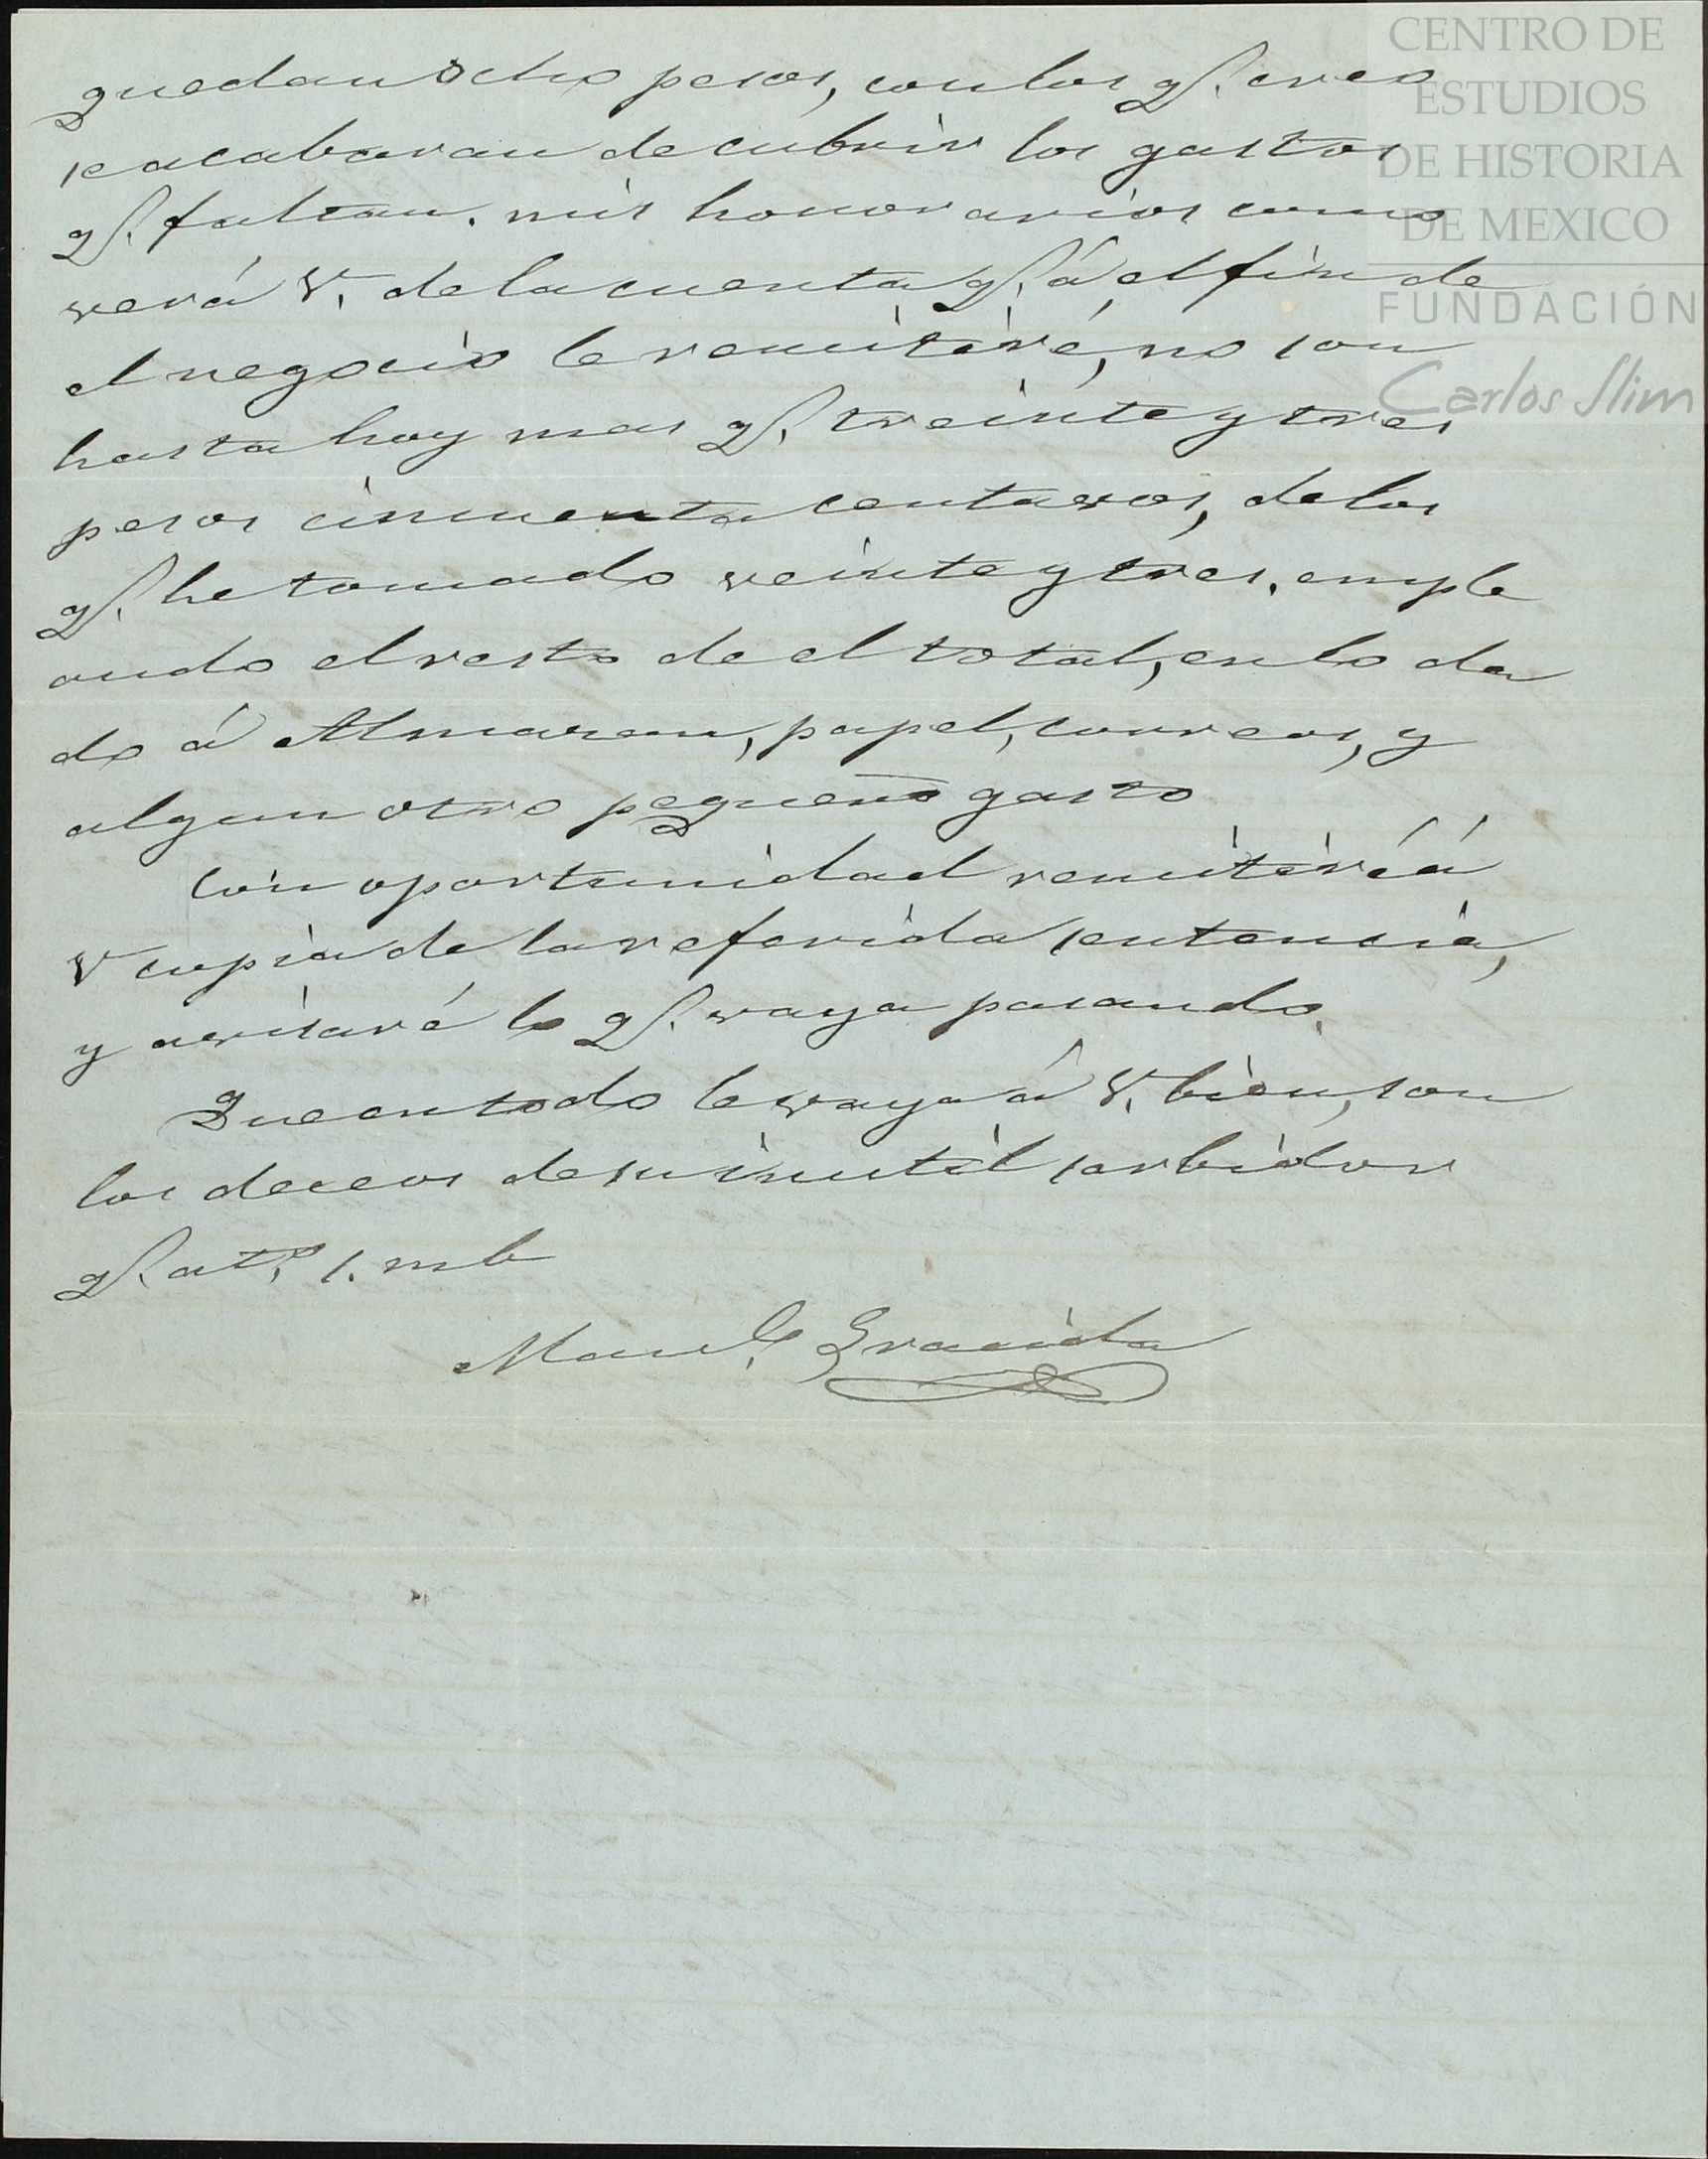 quedan ocho pesos, con los q̃. creo
se acabaran de cubrir los gastos
q̃. faltan. mis honorarios como
verá V. de la cuenta q̃. á el fin de
el negocio le remitiré, no son
hasta hoy mas q̃. treinta y tres
pesos cincuenta centavos, de los
q̃. he tomado veinte y tres, emple
ando el resto de el total, en lo da
do á Almaran, papel, correos, y
algun otro pequeño gasto
Con oportunidad remitiré á
V copia de la referida sentencia,
y avisaré lo q̃. vaya pasando.
Que en todo le vaya á V. bien, son
los deceos de su inutil serbidor
q̃. at.º s. m b
Man.l Gracida
CENTRO DE
ESTUDIOS
DE HISTORIA
DE MEXICO
FUNDACIÓN
Carlos Slim